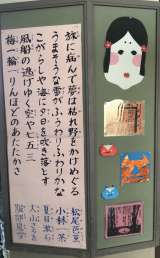 旅に病んで夢は枯れ野をかけめぐる 松尾芭蕉
うまそうな雪がふうわりふわりかな 小林一茶
こがらしや海に夕日を吹き落とす 夏目漱石
風船の逃げゆく空や七五三 大山
梅一輪一りんほどのあたたかさ 服部嵐雪